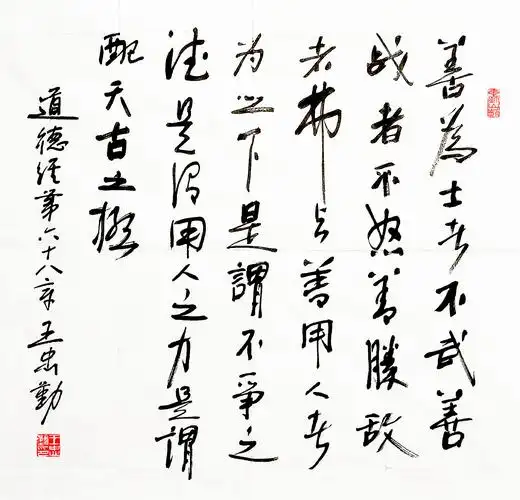 善為士者不武善
战者不怒善勝敌
者弗与善用人者
为之下是謂不爭之
德是谓用人之力是謂
配天古之極
道德经第六十八章王忠勤